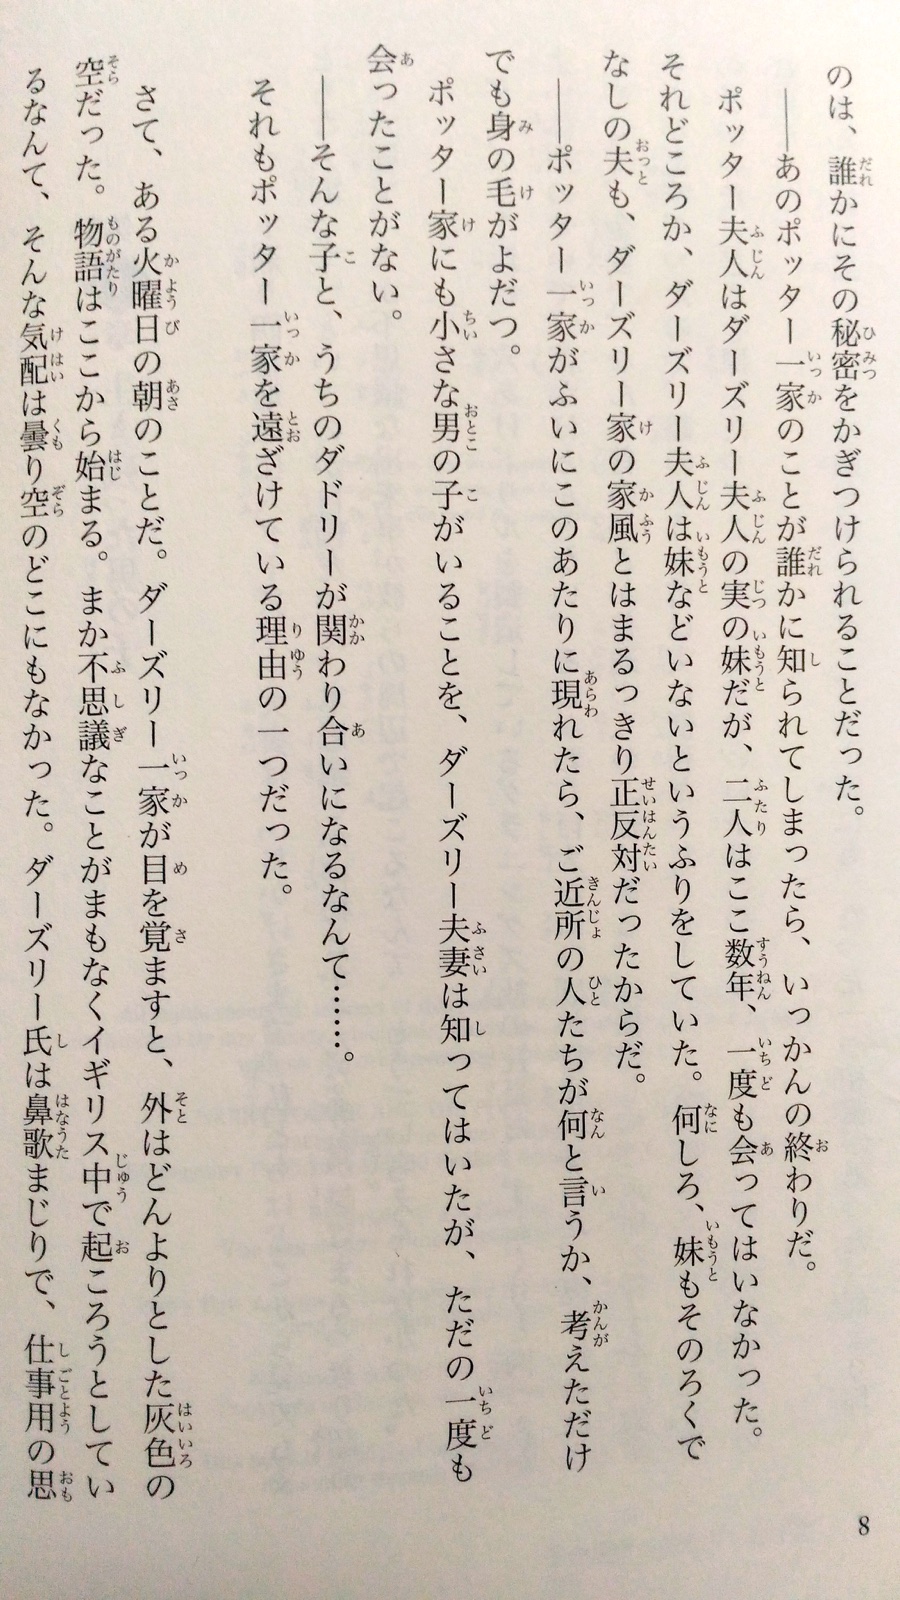 のは、誰かにその秘密をかぎつけられることだった。
――あのポッター一家のことが誰かに知られてしまったら、いっかんの終わりだ。
ポッター夫人はダーズリー夫人の実の妹だが、二人はここ数年、一度も会ってはいなかった。
それどころか、ダーズリー夫人は妹などいないというふりをしていた。何しろ、妹もそのろくで
なしの夫も、ダーズリー家の家風とはまるっきり正反対だったからだ。
――ポッター一家がふいにこのあたりに現れたら、ご近所の人たちが何と言うか、考えただけ
でも身の毛がよだつ。
ポッター家にも小さな男の子がいることを、ダーズリー夫妻は知ってはいたが、ただの一度も
会ったことがない。
――そんな子と、うちのダドリーが関わり合いになるなんて……。
それもポッター一家を遠ざけている理由の一つだった。
さて、ある火曜日の朝のことだ。ダーズリー一家が目を覚ますと、外はどんよりとした灰色の
空だった。物語はここから始まる。まか不思議なことがまもなくイギリス中で起ころうとしてい
るなんて、そんな気配は曇り空のどこにもなかった。ダーズリー氏は鼻歌まじりで、仕事用の思
8